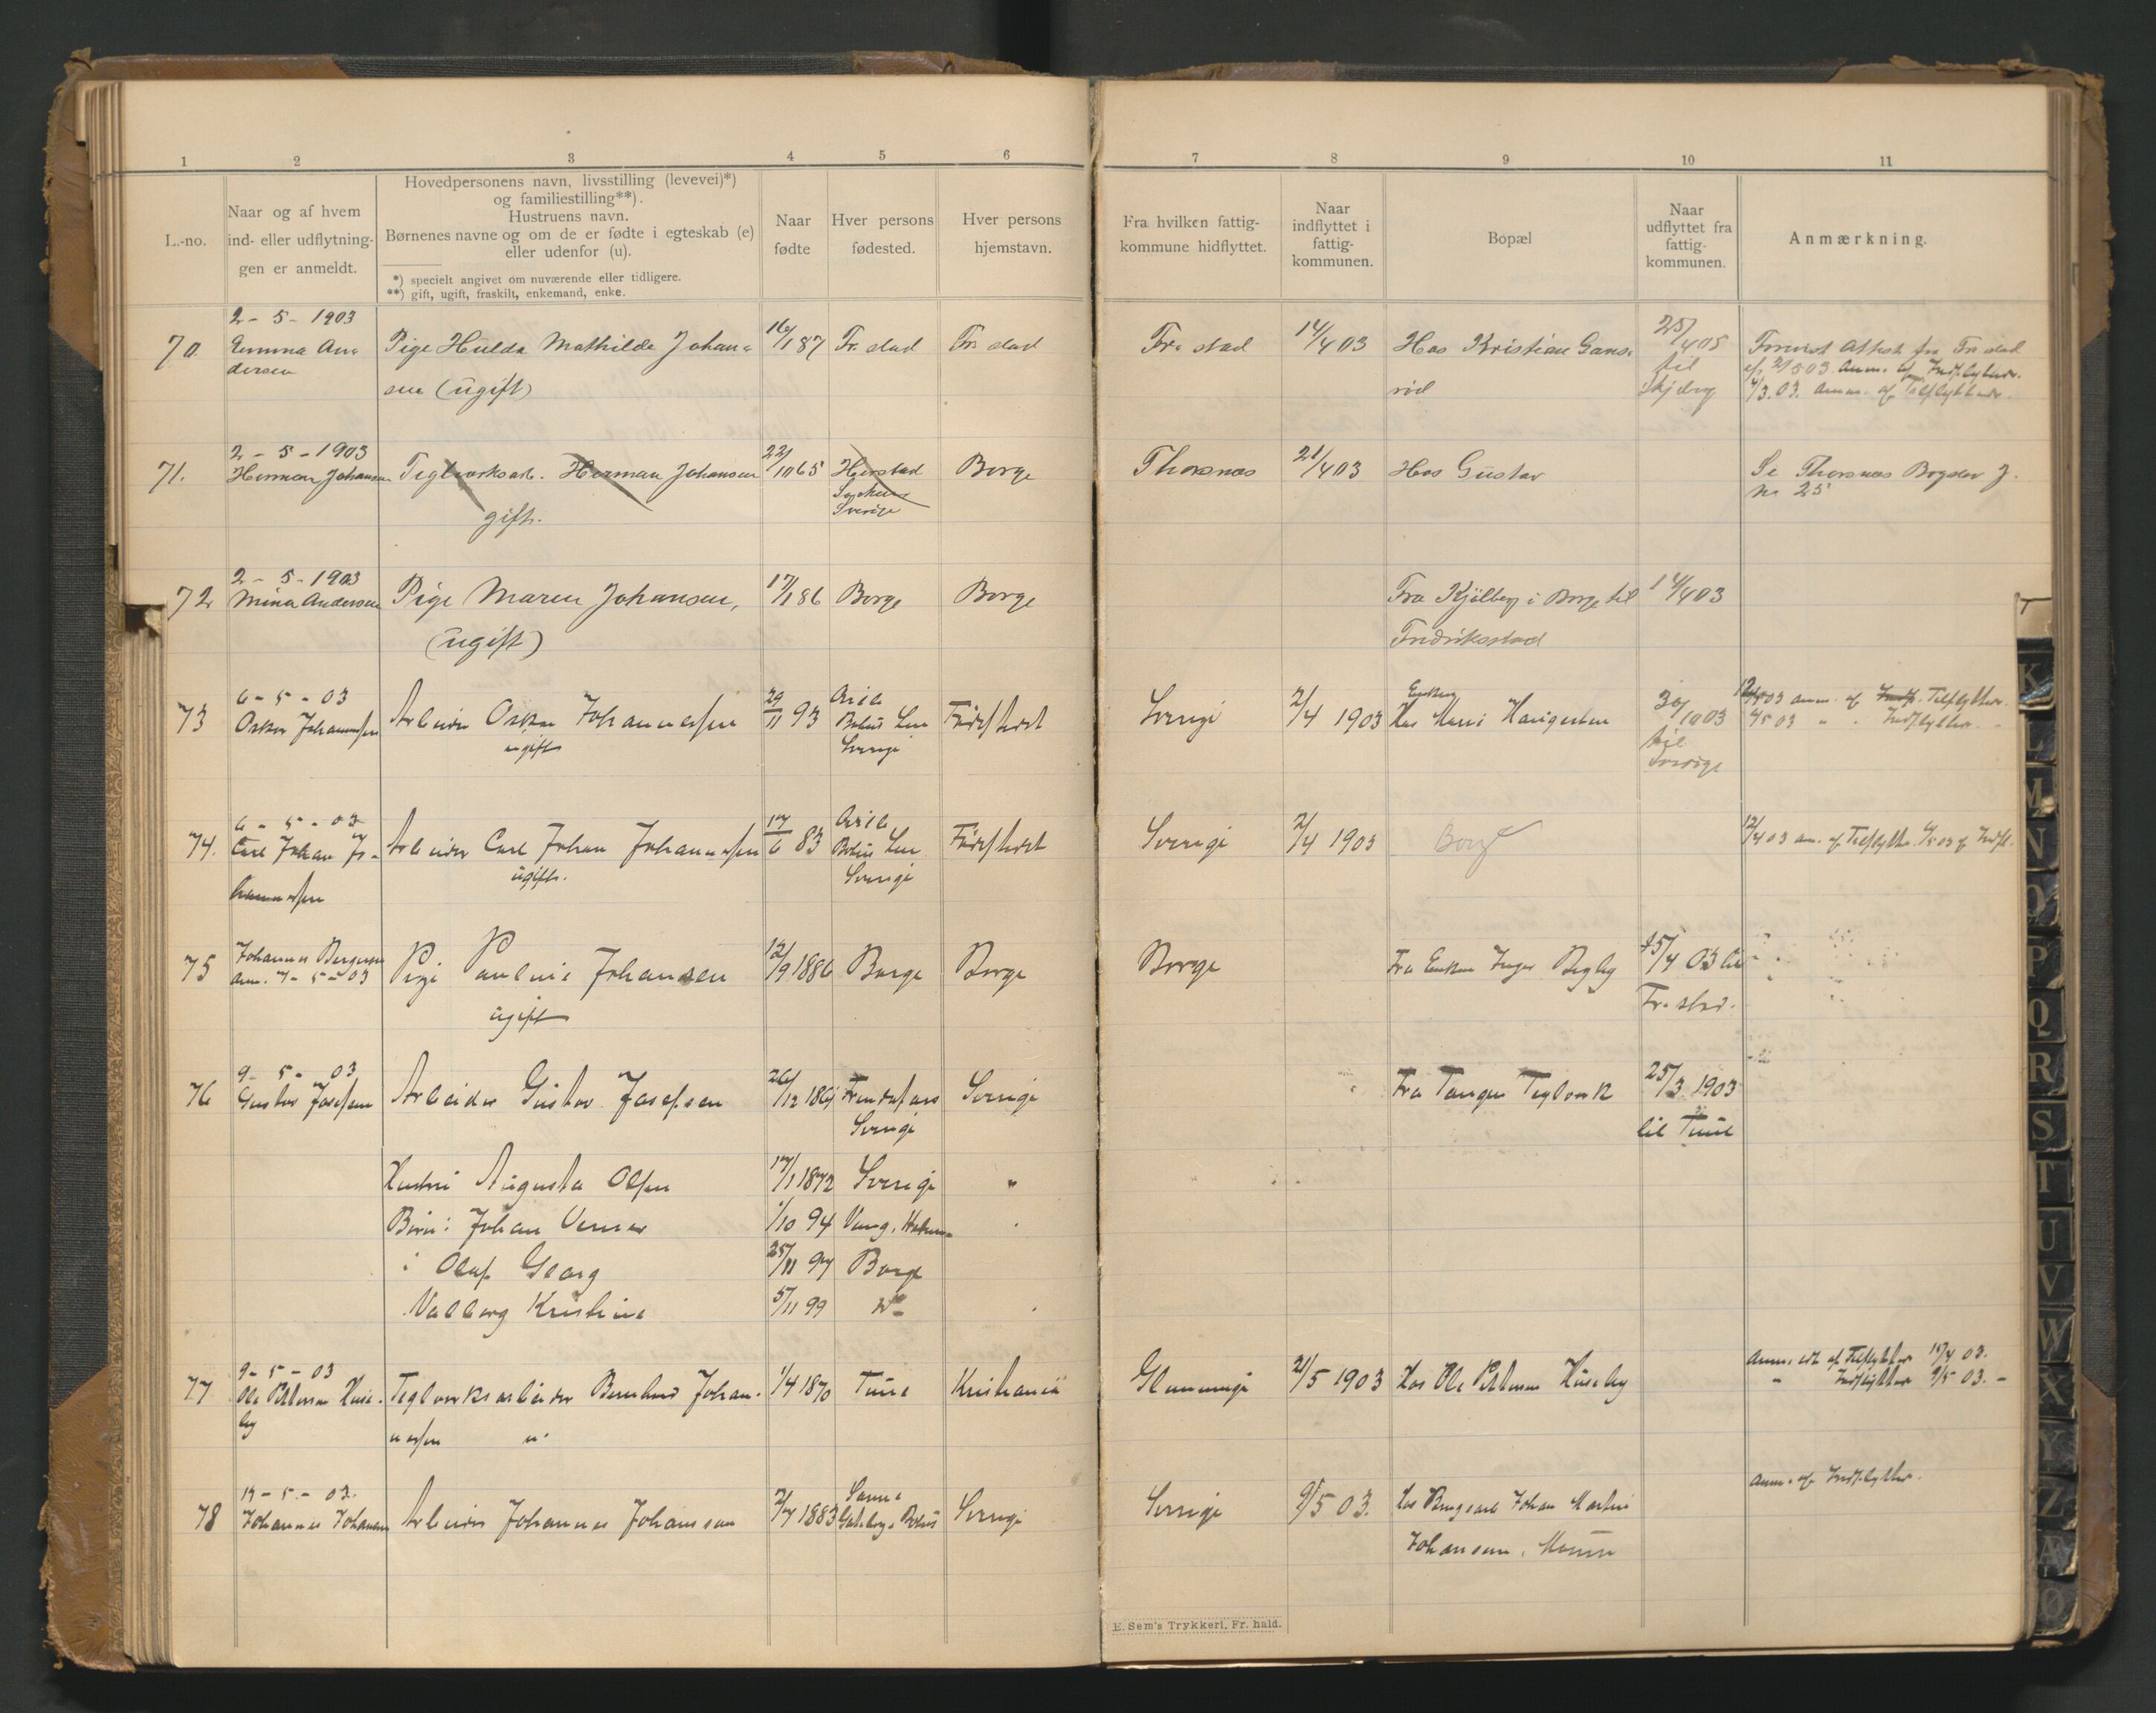 1 2 3 4 5 6 7 8 9 10 11
L.-no.
Naar og af hvem
ind- eller udflytnin-
gen er anmeldt.
Hovedpersonens navn, livsstilling (levevei)*)
og familiestilling**).
Hustruens navn.
Børnenes navne og om de er fødte i egteskab (e)
eller udenfor (u).
*) specielt angivet om nuværende eller tidligere.
**) gift, ugift, fraskilt, enkemand, enke.
Naar
fødte
Hver persons
fødested.
Hver persons
hjemstavn.
Fra hvilken fattig-
kommune hidflyttet.
Naar
indflyttet i
fattig-
kommunen.
Bopæl
Naar
udflyttet fra
fattig-
kommunen.
Anmærkning.
2 - 5 - 1903
70. Emma An- Pige Hulda Mathilde Johan- 16/1 87 Fr. stad Fr. stad Fr. stad 14/4 03 Hos Kristian Gans- 25/4 05
dersen sen (ugift) rød til
Skjeberg
Forevist Attest fra Fr. stad
2/5 03 Anm. af Indflytter.
4/3. 03. Anm. af Tilflytter.
2 - 5 - 1903
71. Herman Johansen Teglverksarb. Herman Johansen 22/10 65 Borge Thorsnæs 21/4 03 Hos Gustav Se Thorsnæs J.
gift. Sverige Nr 25
2 - 5 - 1903
72 Mina Andersen Pige Maren Johansen, 17/1 86 Borge Borge Fra Kjølberg i Borge til 14/4 03
(ugift) Fredriksstad
6 - 5 - 03
73 Oskar Johannessen Arbeider Oskar Johannessen 29/11 93 Bohus Len Fødestedet Sverige 2/4 1903 Hos 30/10 03
ugift Sverige til
Sverige
anm. af Indfl. Tilflytter.
4/5 03 " " Indflytter.
6 - 5 - 03
74. Carl Johan Jo- Arbeider Carl Johan Johannessen 17/6 83 Bohus Len Fødestedet Sverige 2/4 1903 Borge 12/4 03 an. af Tilflytter. 6/5 03 af Indfl.
hannessen ugift. Sverige
75 Johannes Bergersen Pige Pauline Johansen 12/9 1886 Borge Borge Borge Fra Enken Inger Begby 15/4 03 til
anm. 7 - 5 - 03 ugift Fr. stad.
9 - 5 - 03
76 Gustav Josefsen Arbeider Gustav Josefsen 26/12 Sverige Fra Tangen Teglverk 25/3 1903
Sverige til Tune
Hustru Augusta Olsen 17/1 1872 Sverige "
Børn: Johan Verner 1/10 94 Vang,
Olaf Georg 25/11 97 Borge
Valborg Kristine 5/11 99
9 - 5 - 03
77 Ole Pettersen Huse- Teglverksarbeider Bernhard Johan- 1/4 1870 Tune Kristiania Glemminge 21/5 1903 Hos Ole Pettersen Huseby
by nessen u.
Anm. af Tilflytter 15/4 03.
" Indflytter 9/5 03. -
14 - 5 - 03.
78 Johannes Johansen Arbeider Johannes Johansson 2/7 1883 Sverige Sverige 9/5 03. Hos Johan Martin Anm. af Indflytter.
Johansen,
E. Sem's Trykkeri, Fr. hald.
K
L
M
N
O
P
Q
R
S
T
U
V
W
X
Y
Z
Æ
Ø